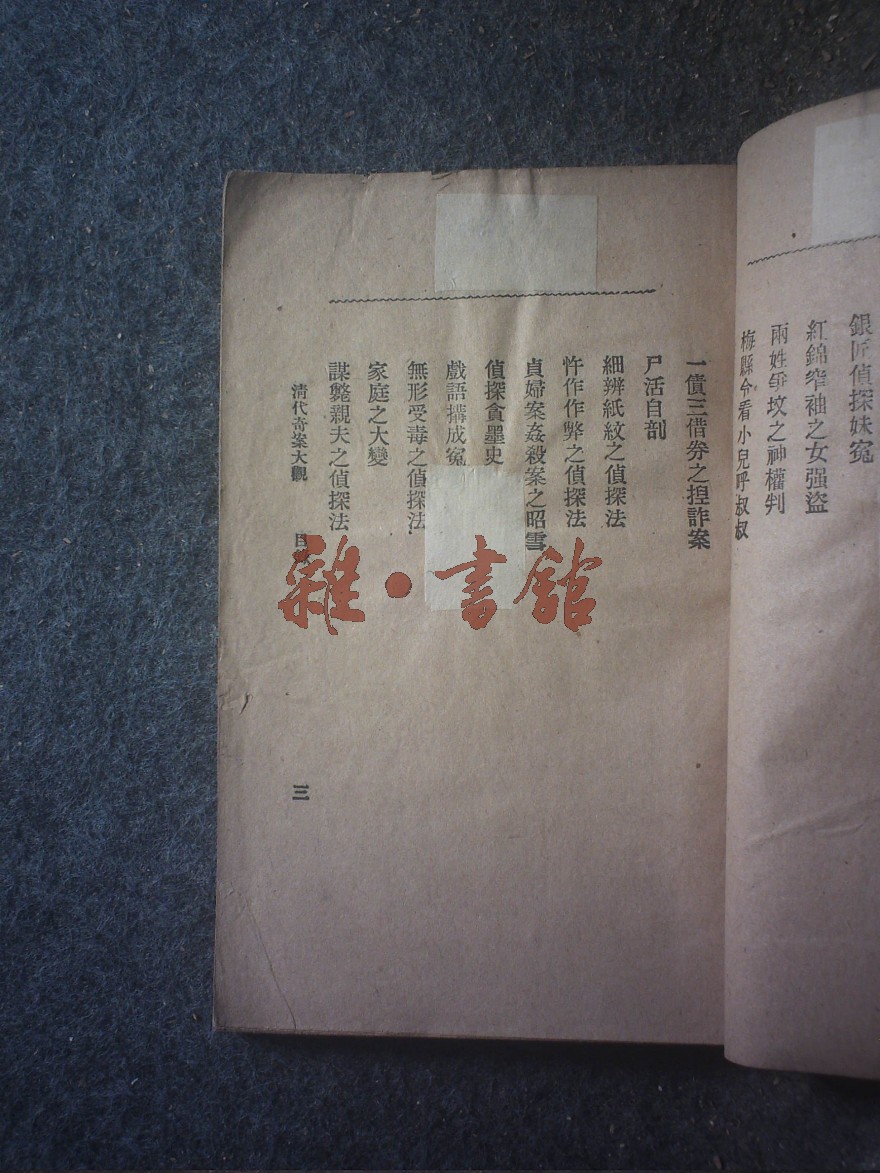 銀匠偵探妹冤
紅錦窄袖之女强盜
兩姓爭坟之神權判
梅縣令看小兒呼叔叔
一債三借券之揑詐案
尸活自剖
細辨紙紋之偵探法
忤作作弊之偵探法
貞婦案姦殺案之昭雪
偵探貪墨史
戲語搆成冤
無形受毒之偵探法
家庭之大變
謀斃親夫之偵探法
清代奇案大觀 目
三
雜·書館